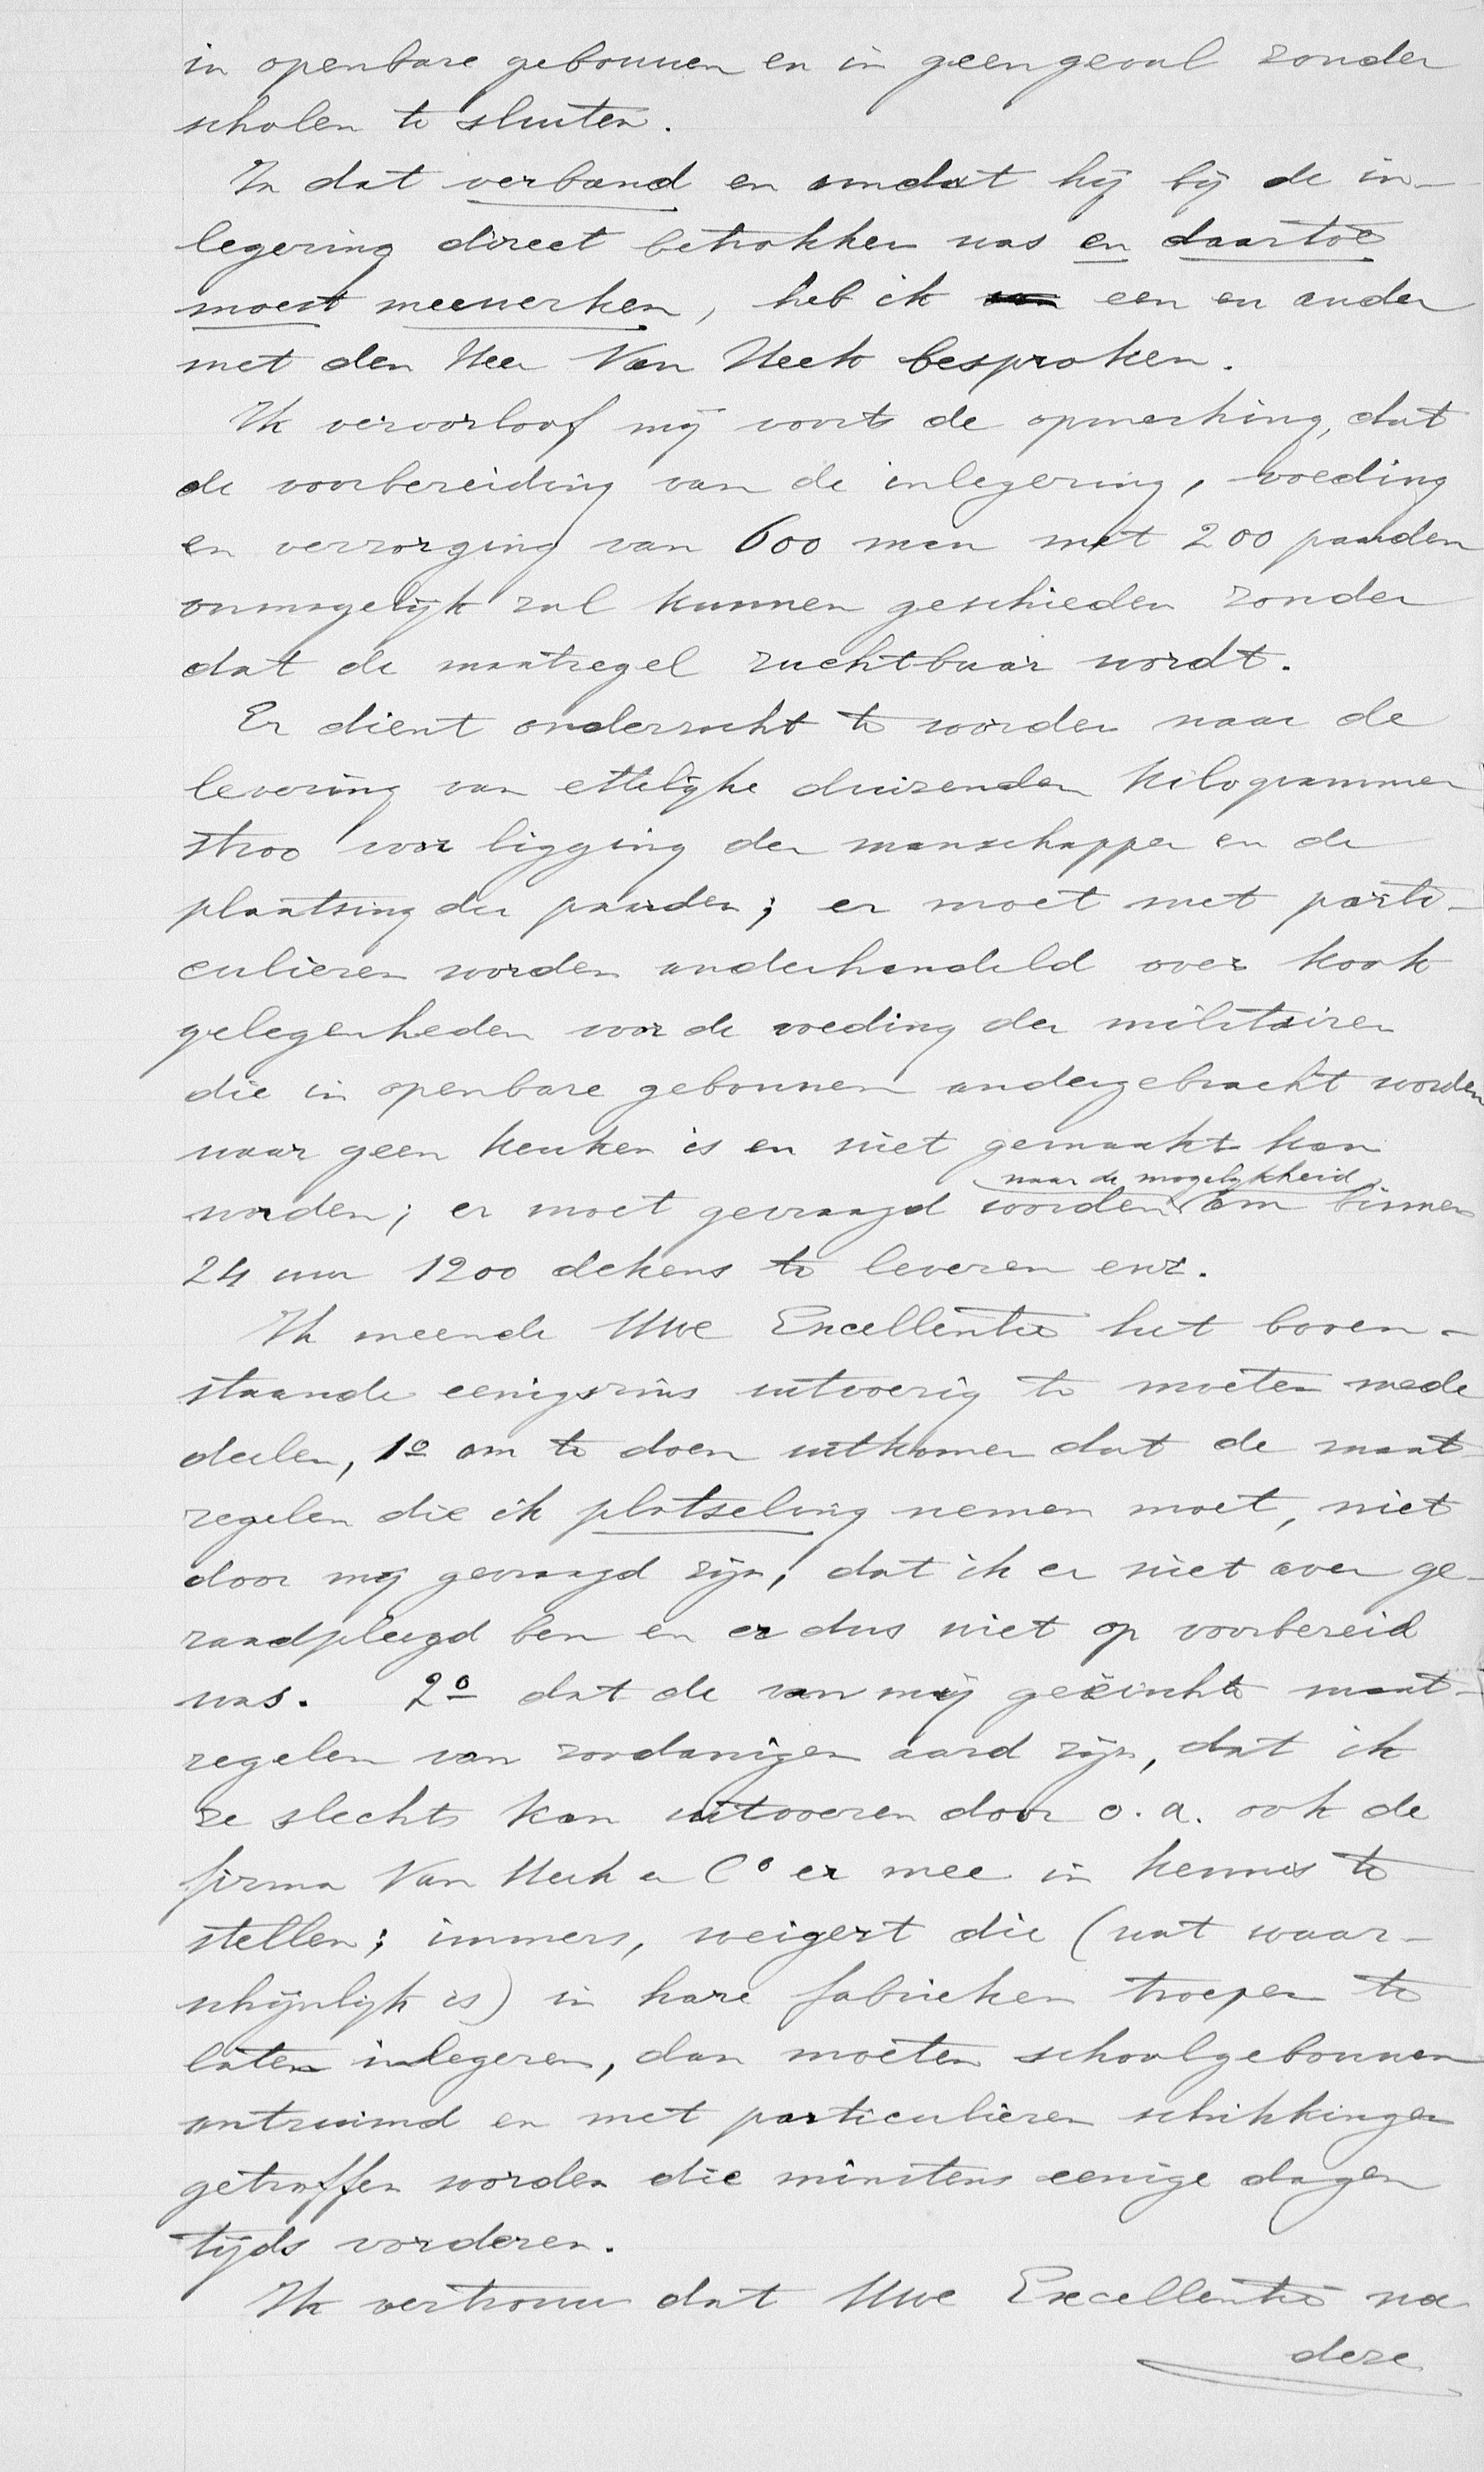 in openbare gebouwen en in geen geval zonder
scholen te sluiten.
In dat verband en omdat hij bij de in-
legering direct betrokken was en daartoe
moest meewerken, heb ik een en ander
met den Heer Van Heek besproken.
Ik veroorloof mij voorts de opmerking, dat
de voorbereiding van de inlegering, voeding
en verzorging van 600 man met 200 paarden
onmogelijk zal kunnen geschieden zonder
dat de maatregel ruchtbaar wordt.
Er dient onderzocht te worden naar de
levering van ettelijke duizenden kilogrammen
stroo voor ligging der manschappen en de
plaatsing der paarden; er moet met parti-
culieren worden onderhandeld over kook
gelegenheden voor de voeding der militairen
die in openbare gebouwen ondergebracht worden
waar geen keuken is en niet gemaakt kan
naar de mogelijkheid
worden; er moet gevraagd worden om binnen
24 uur 1200 dekens te leveren enz.
Ik meende Uwe Excellentie het boven-
staande eenigszins uitvoerig te moeten mede
deelen, 1o om te doen uitkomen dat de maat-
regelen die ik plotseling nemen moet, niet
door mij gevraagd zijn, dat ik er niet over ge-
raadpleegd ben en er dus niet op voorbereid
was. 2o dat de van mij geëischte maat-
regelen van zoodanigen aard zijn, dat ik
ze slechts kan uitvoeren door o.a. ook de
firma Van Heek en Co er mee in kennis te
stellen; immers, weigert die (wat waar-
schijnlijk is) in hare fabrieken troepen te
laten inlegeren, dan moeten schoolgebouwen
ontruimd en met particulieren schikkingen
getroffen worden die minstens eenige dagen
tijds vorderen.
Ik vertrouw dat Uwe Excellentie na
deze